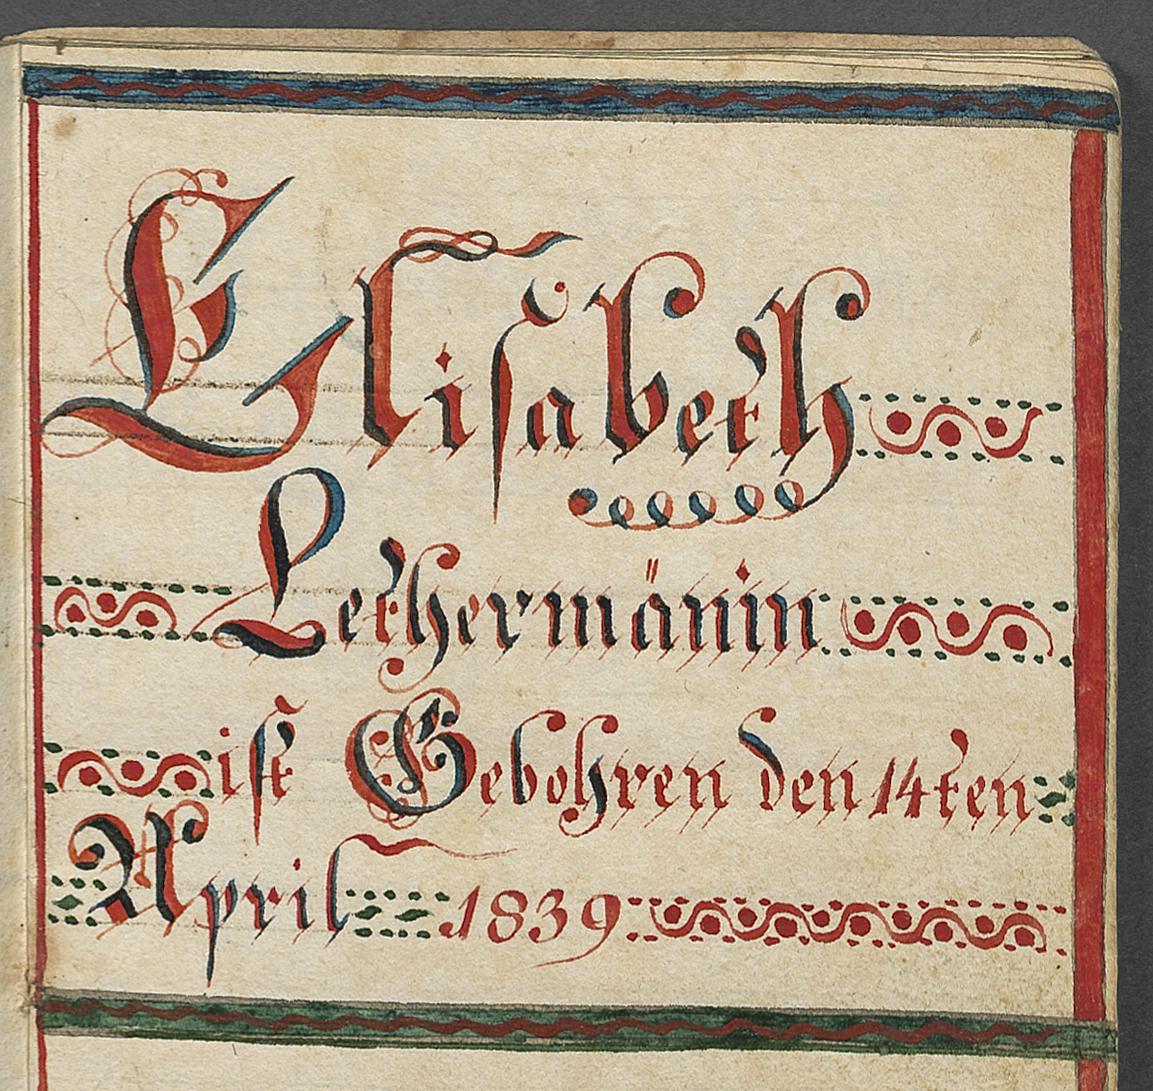 Elisabeth
Lethermänin
ist Gebohren den 14ten
April 1839